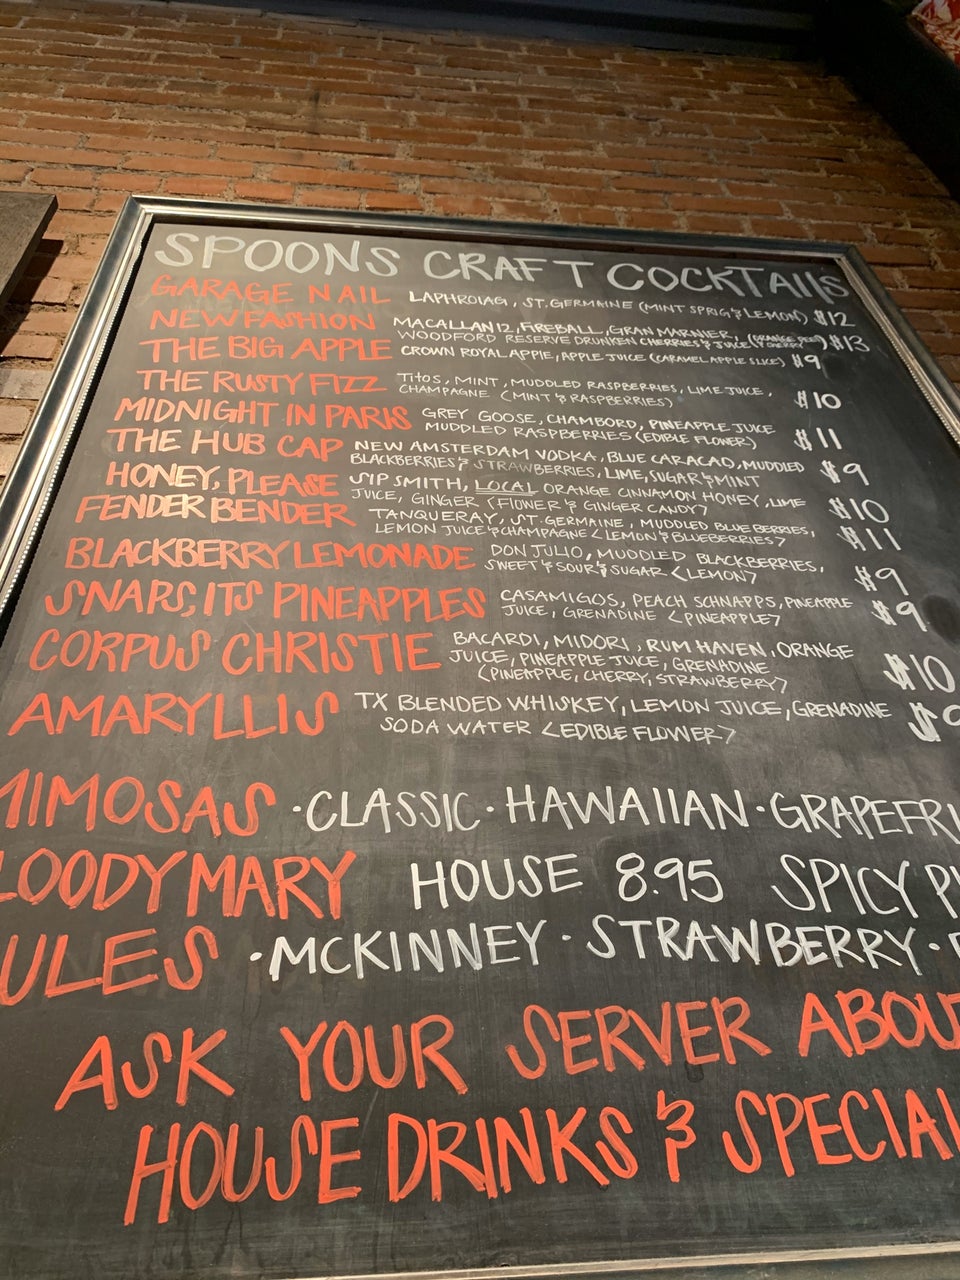 SPOONS CRAFT COCKTAILS
GARAGE NAIL LAPHROIAG, ST. GERMAINE (MINT SPRIG & LEMON) $12
NEW FASHION MACALLAN 12, FIREBALL, GRAN MARNIER, (ORANGE PEEL) $13
WOODFORD RESERVE DRUNKEN CHERRIES & JUICE,
THE BIG APPLE CROWN ROYAL APPLE, APPLE JUICE (CARAMEL APPLE SLICE) $9
THE RUSTY FIZZ TITOS, MINT, MUDDLED RASPBERRIES, LIME JUICE,
CHAMPAGNE (MINT & RASPBERRIES) $10
MIDNIGHT IN PARIS GREY GOOSE, CHAMBORD, PINEAPPLE JUICE
MUDDLED RASPBERRIES (EDIBLE FLOWER) $11
THE HUB CAP NEW AMSTERDAM VODKA, BLUE CARACAO, MUDDLED
BLACKBERRIES & STRAWBERRIES, LIME, SUGAR & MINT $9
HONEY, PLEASE SIP SMITH, LOCAL ORANGE CINNAMON HONEY, LIME
JUICE, GINGER (FLOWER & GINGER CANDY) $10
FENDER BENDER TANQUERAY, ST. GERMAINE, MUDDLED BLUEBERRIES,
LEMON JUICE & CHAMPAGNE <LEMON & BLUEBERRIES> $11
BLACKBERRY LEMONADE DON JULIO, MUDDLED BLACKBERRIES,
SWEET & SOUR & SUGAR <LEMON> $9
SNAPS, ITS PINEAPPLES CASAMIGOS, PEACH SCHNAPPS, PINEAPPLE
JUICE, GRENADINE <PINEAPPLE> $9
CORPUS CHRISTIE BACARDI, MIDORI, RUM HAVEN, ORANGE
JUICE, PINEAPPLE JUICE, GRENADINE
<PINEAPPLE, CHERRY, STRAWBERRY> $10
AMARYLLIS TX BLENDED WHISKEY, LEMON JUICE, GRENADINE $9
SODA WATER <EDIBLE FLOWER>
MIMOSAS · CLASSIC · HAWAIIAN · GRAPEFRU
LOODY MARY HOUSE 8.95 SPICY PI
ULES · MCKINNEY · STRAWBERRY ·
ASK YOUR SERVER ABOU
HOUSE DRINKS & SPECIAL